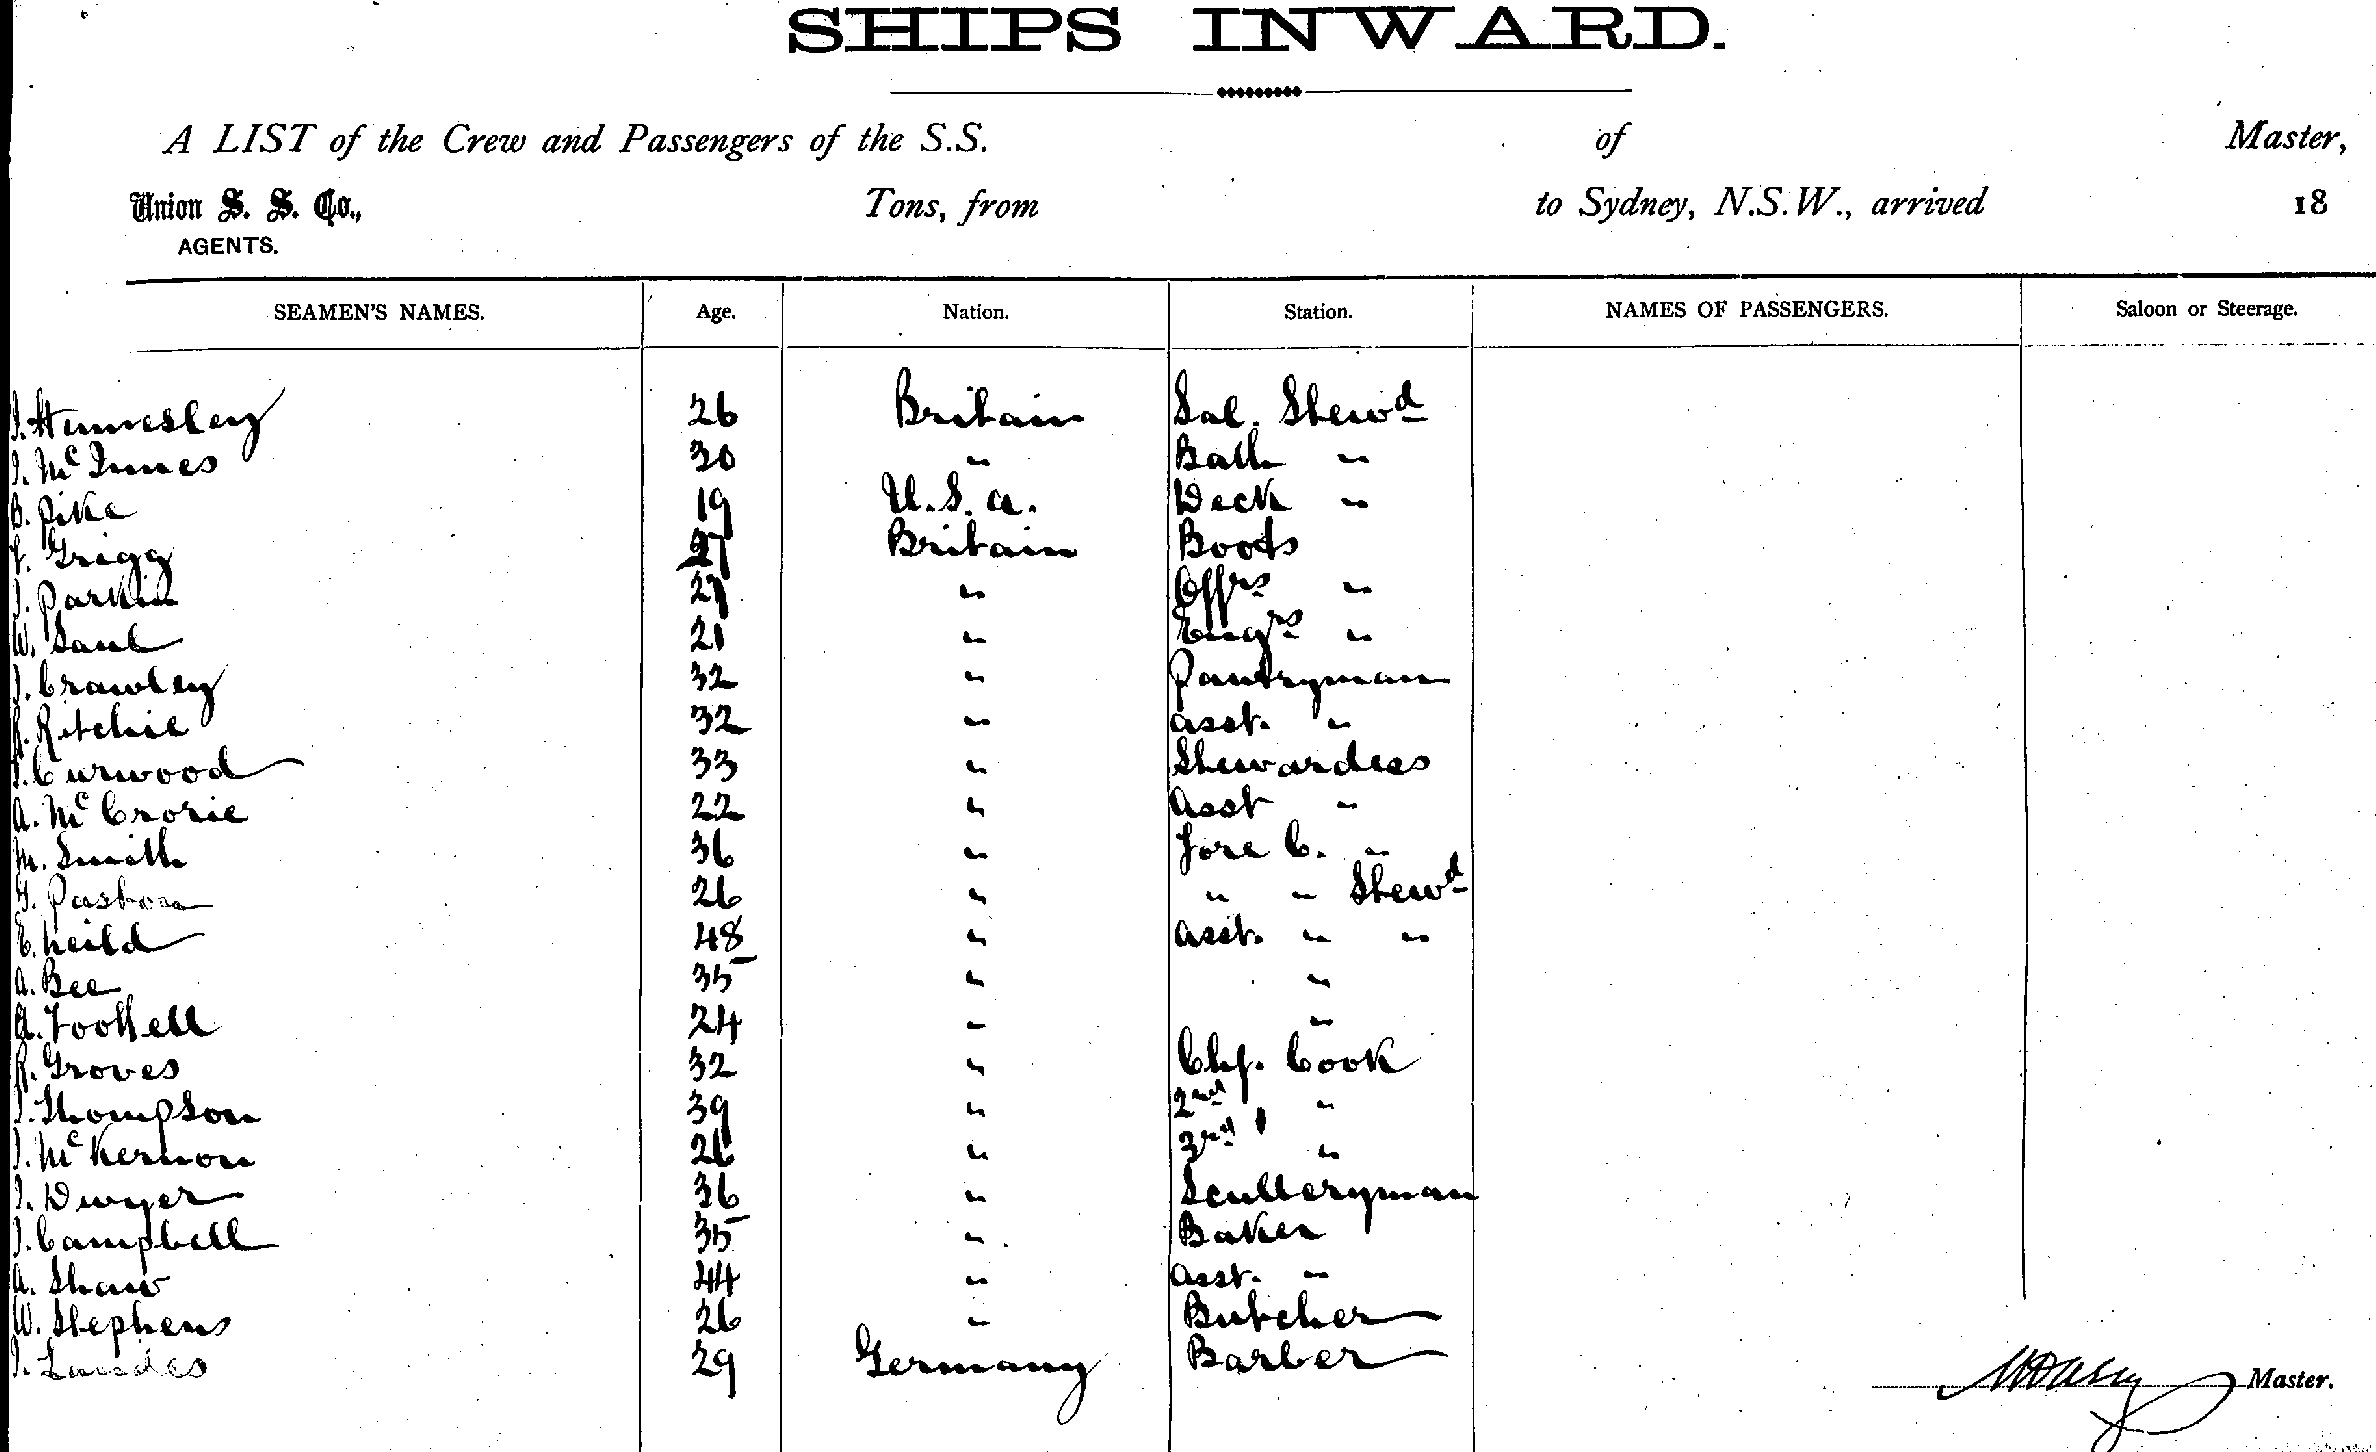 SHIPS INWARD.
A LIST of the Crew and Passengers of the S.S. of Master,
Union S. S. Co., Tons, from to Sydney, N.S.W., arrived 18
AGENTS.
SEAMEN'S NAMES. Age. Nation. Station. NAMES OF PASSENGERS. Saloon or Steerage.
26 Britain Sal. Stewd
J. McInnes 30 " Bath "
B. Pike 19 U.S.A. Deck "
Grigg 27 Britain Boots
J. Parkin 27 " Offrs "
W. Saul 21 " Engrs "
J. Crawley 32 " Pantryman
R. Ritchie 32 " Asst. "
Curwood 33 " Stewardess
A. McCrorie 22 " Asst "
M. Smith 36 " Fore C. "
26 " " " Stewd
E. Neild 48 " Asst. " "
A. Bee 35 " "
A. Foothell 24 " "
R. Groves 32 " Chf. Cook
J. Thompson 39 " 2nd "
J. McKernon 26 " 3rd "
J. Dwyer 36 " Sculleryman
J. Campbell 35 " Baker
A. Shaw 44 " Asst. "
W. Stephens 26 " Butcher
29 Germany Barber
Master.